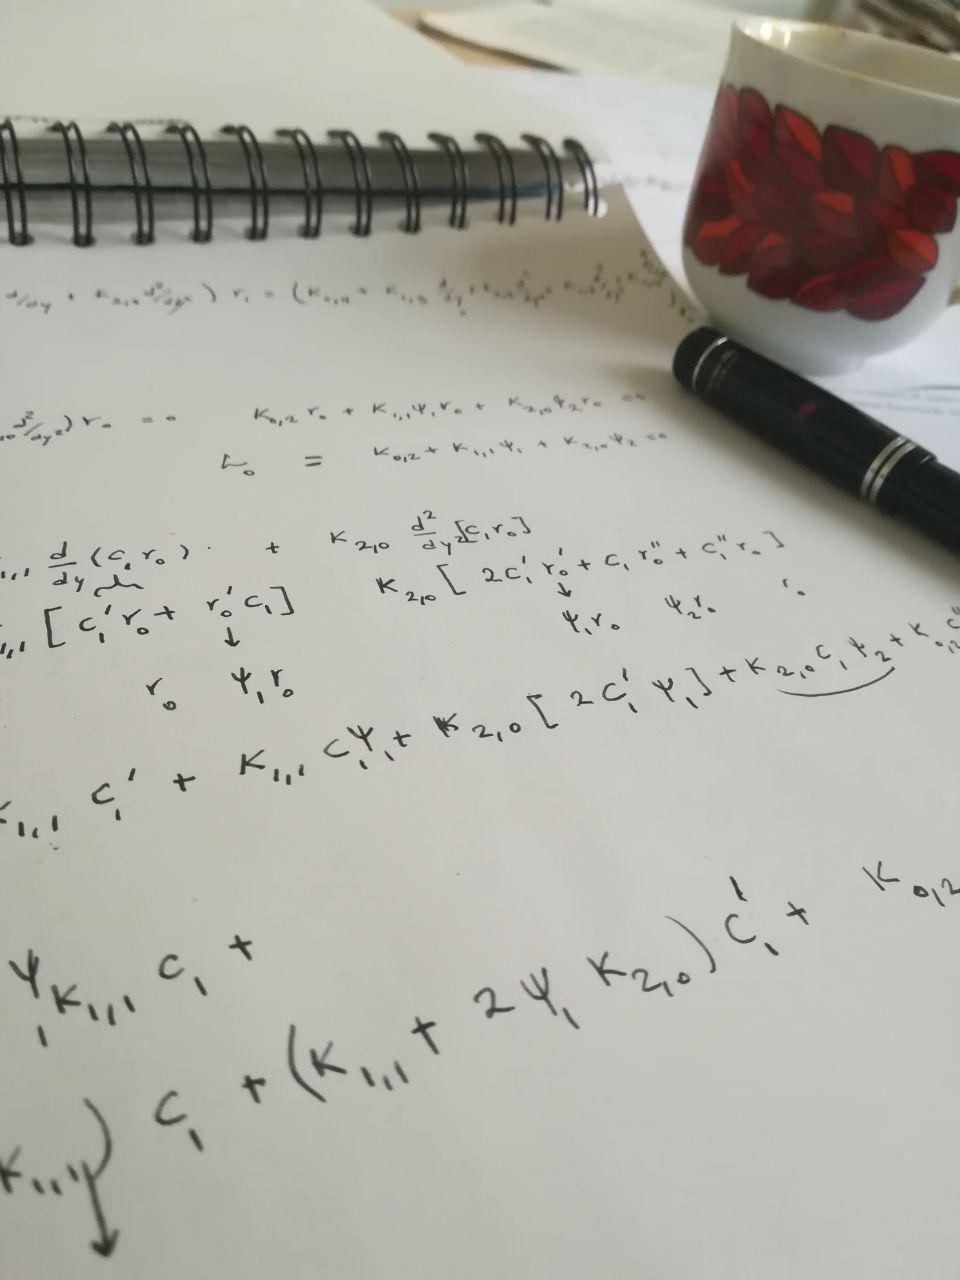 d/dy + K₂,₀ d²/dy² ) r₁ = (K₀,₄ + K₁,₃ d/dy +
d²/dy²) r₀ = 0 K₀,₂ r₀ + K₁,₁ ψ₁ r₀ + K₂,₀ ψ₂ r₀ = 0
L₀ = K₀,₂ + K₁,₁ ψ₁ + K₂,₀ ψ₂ = 0
₁,₁ d/dy (c₁ r₀) + K₂,₀ d²/dy² [c₁ r₀]
₁,₁ [c₁' r₀ + r₀' c₁] K₂,₀ [2c₁' r₀' + c₁ r₀'' + c₁'' r₀]
↓ ↓
r₀ ψ₁ r₀ ψ₁ r₀ ψ₂ r₀ r₀
K₁,₁ c₁' + K₁,₁ c₁ψ₁ + K₂,₀ [2c₁' ψ₁] + K₂,₀ c₁ ψ₂ + K₀,₂ c₁''
ψ₁ K₁,₁ c₁ +
K₁,₁ψ) c₁ + (K₁,₁ + 2ψ₁ K₂,₀) c₁' + K₀,₂
↓